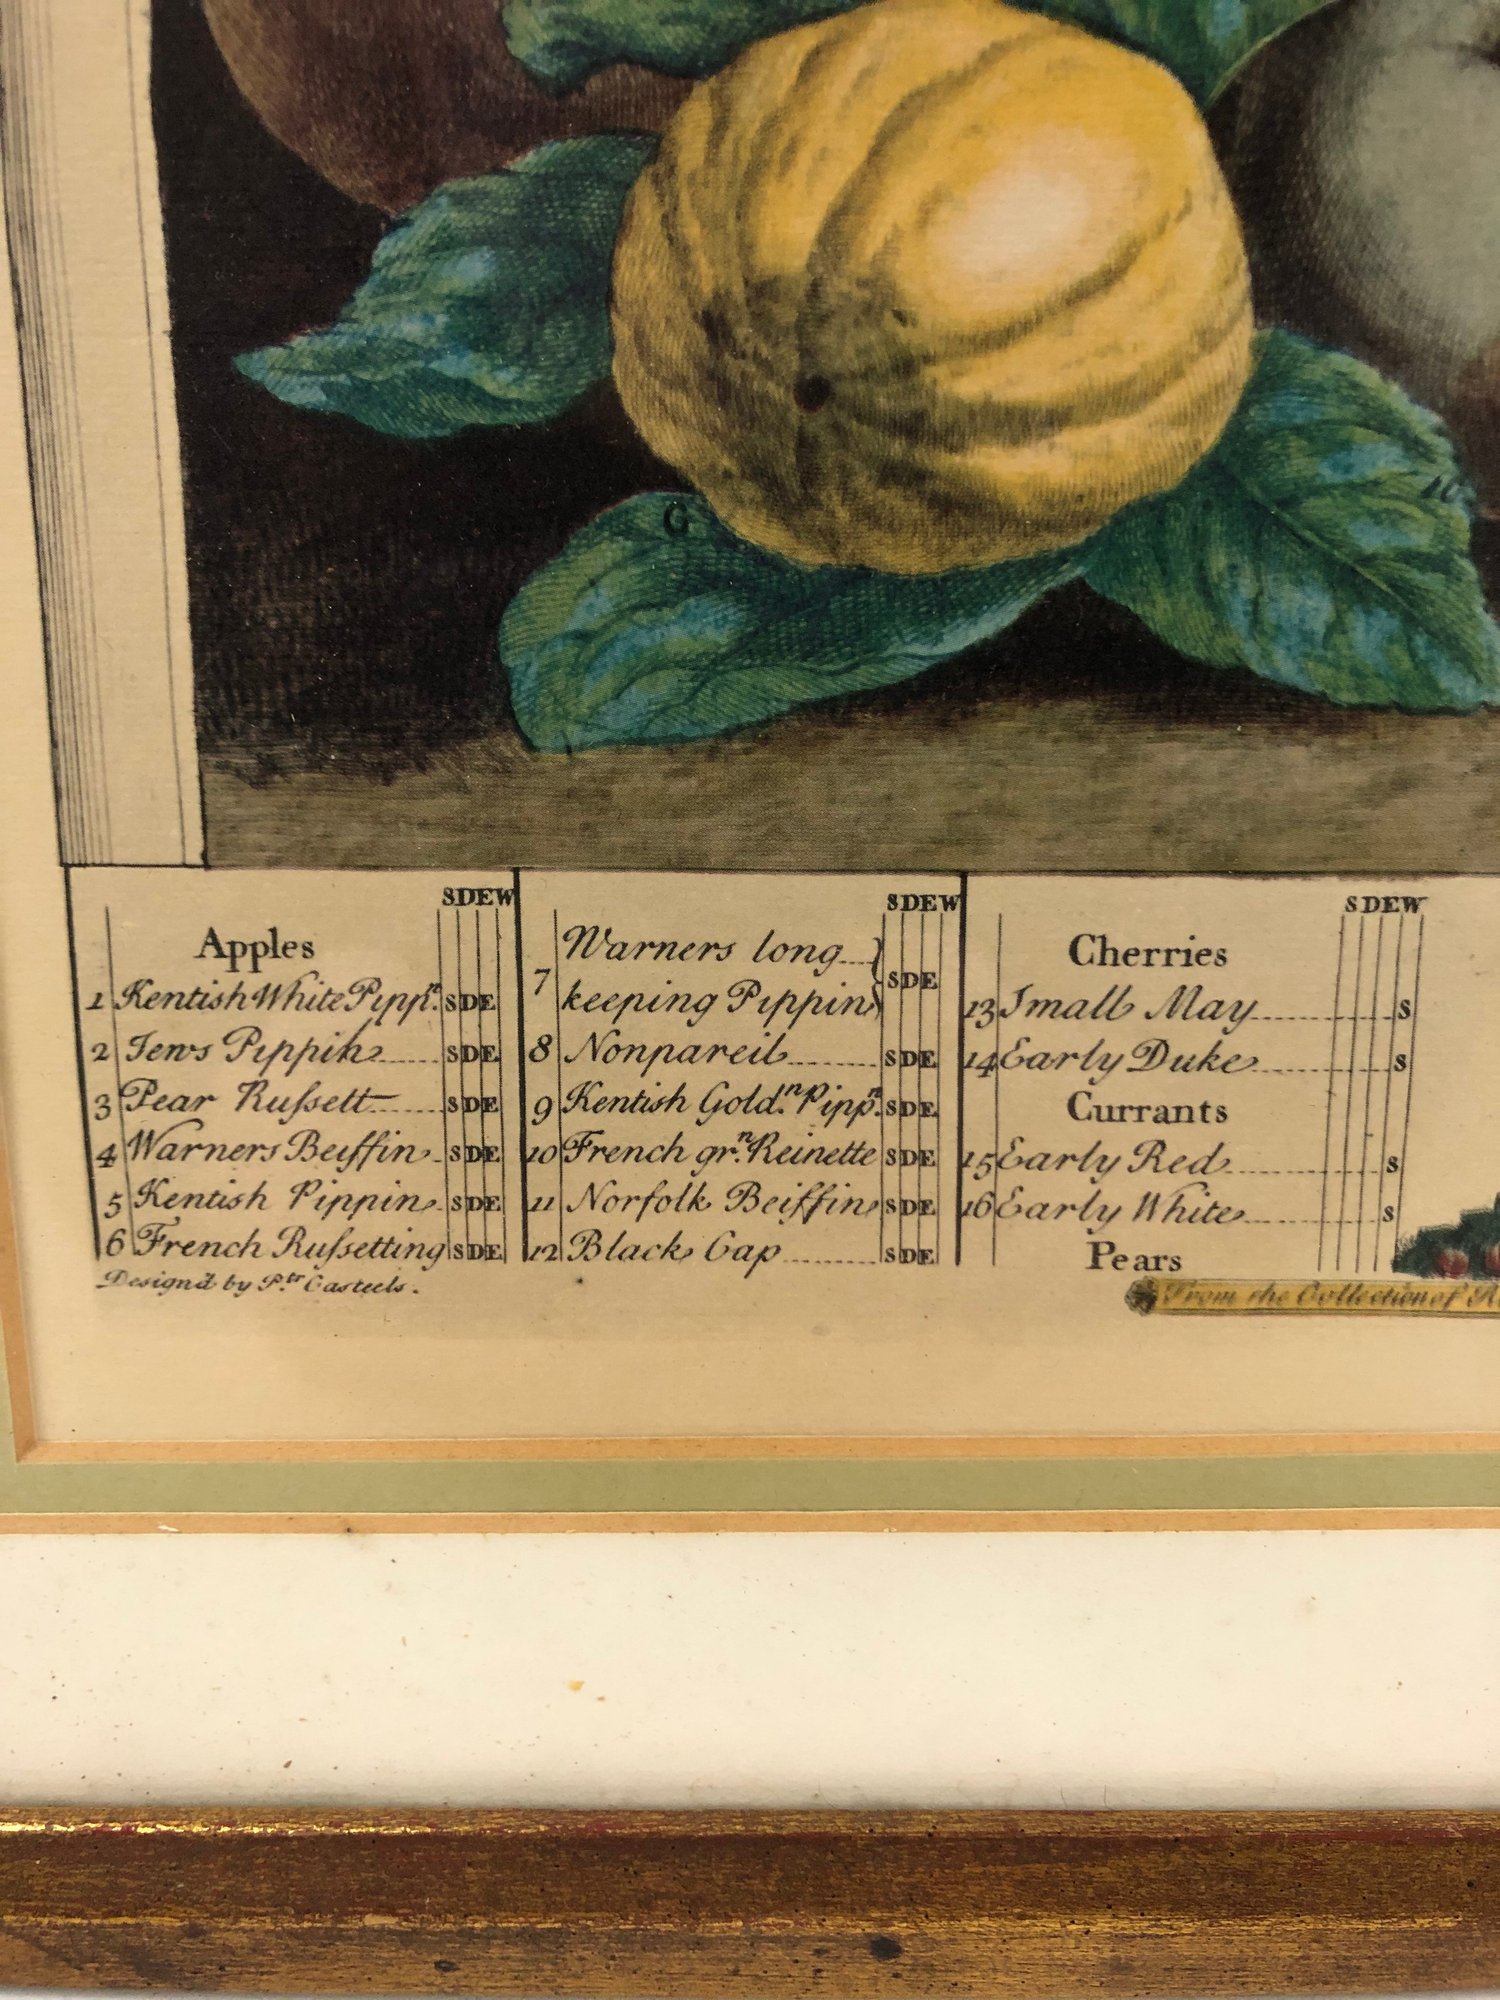 G
10
SDEW
Apples
1 Kentish White Pippn. SDE
2 Jews Pippin SDE
3 Pear Ruſsett SDE
4 Warners Beiffin SDE
5 Kentish Pippin SDE
6 French Ruſsetting SDE
SDEW
7 Warners long
keeping Pippin SDE
8 Nonpareil SDE
9 Kentish Gold.n Pippn. SDE
10 French gr.n Reinette SDE
11 Norfolk Beiffin SDE
12 Black Cap SDE
SDEW
Cherries
13 Small May S
14 Early Duke S
Currants
15 Early Red S
16 Early White S
Pears
Design'd by P.tr Casteels.
From the Collection of